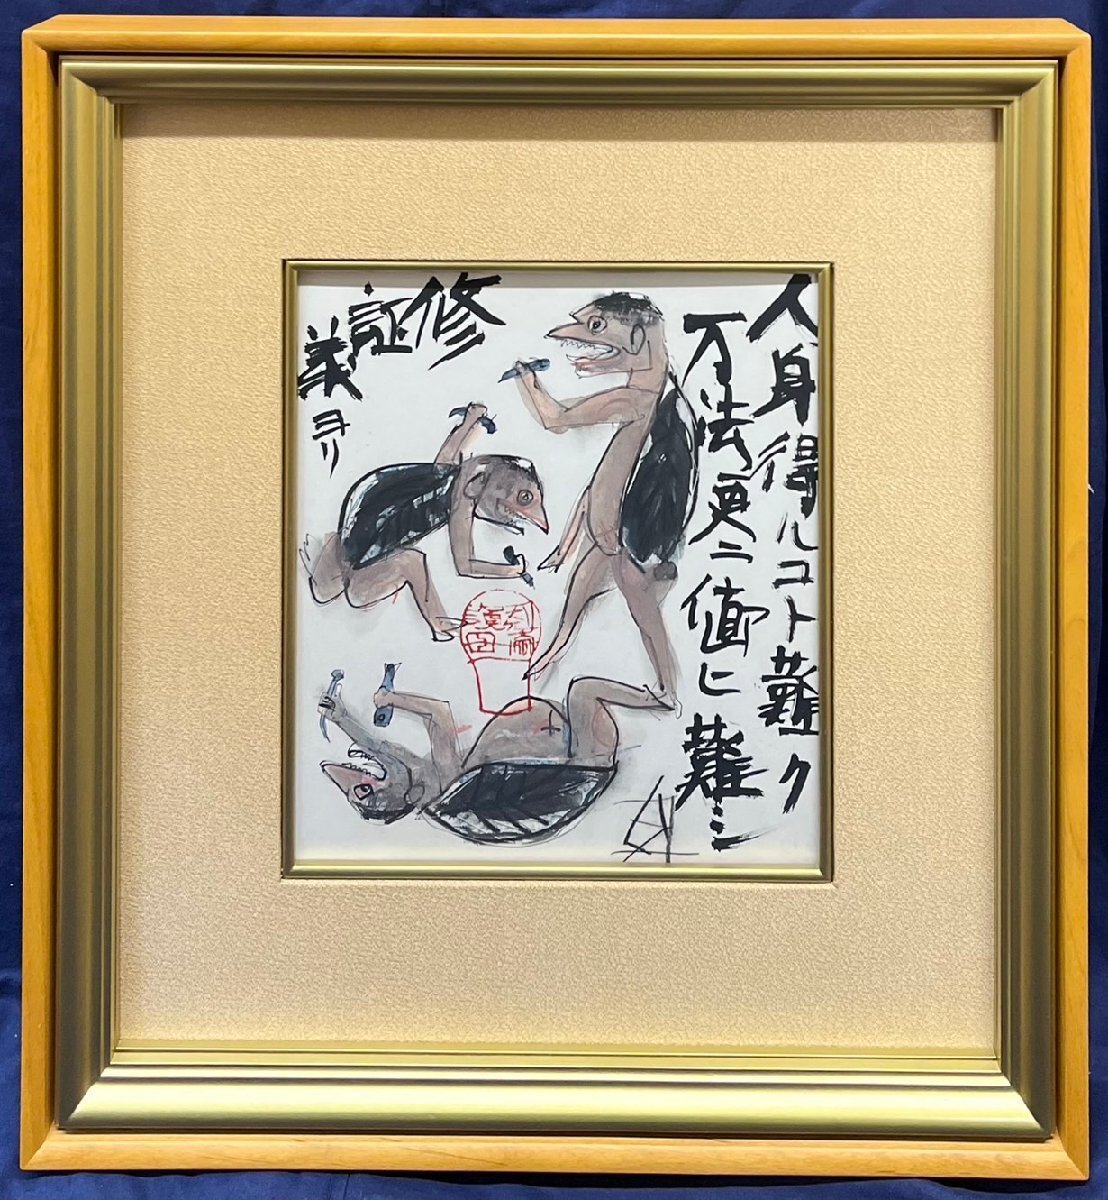 人身得ルコト難ク
万法更ニ値ヒ難シ
修
証
義ヨリ